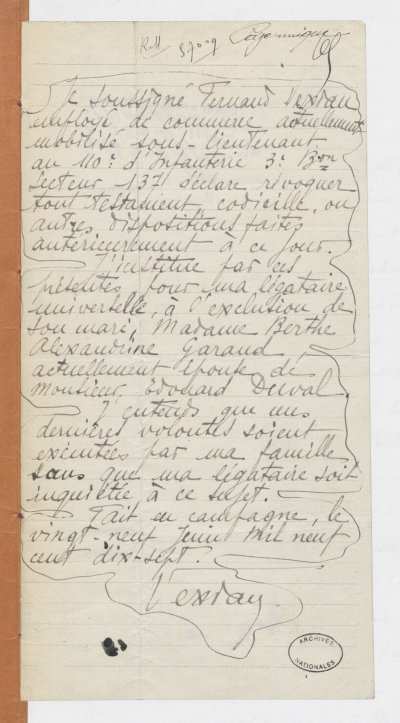 Page unique
Je soussigné Fernand Vexiau
employé de commerce actuellement
mobilisé sous-lieutenant
au 110e d'Infanterie 3e Bon
secteur 137 déclare révoquer
tout testament codicille, ou
autres dispositions faites
antérieurement à ce jour.
J'institue par ces
présentes pour ma légataire
universelle, à l'exclusion de
son mari, Madame Berthe
Alexandrine Garaud,
actuellement épouse de
Monsieur Edouard Duval.
J'entends que mes
dernières volontés soient
exécutées par ma famille
sans que ma légataire soit
inquiétée à ce sujet.
Fait en campagne, le
vingt-neuf Juin mil neuf
cent dix-sept.
Vexiau
ARCHIVES
NATIONALES